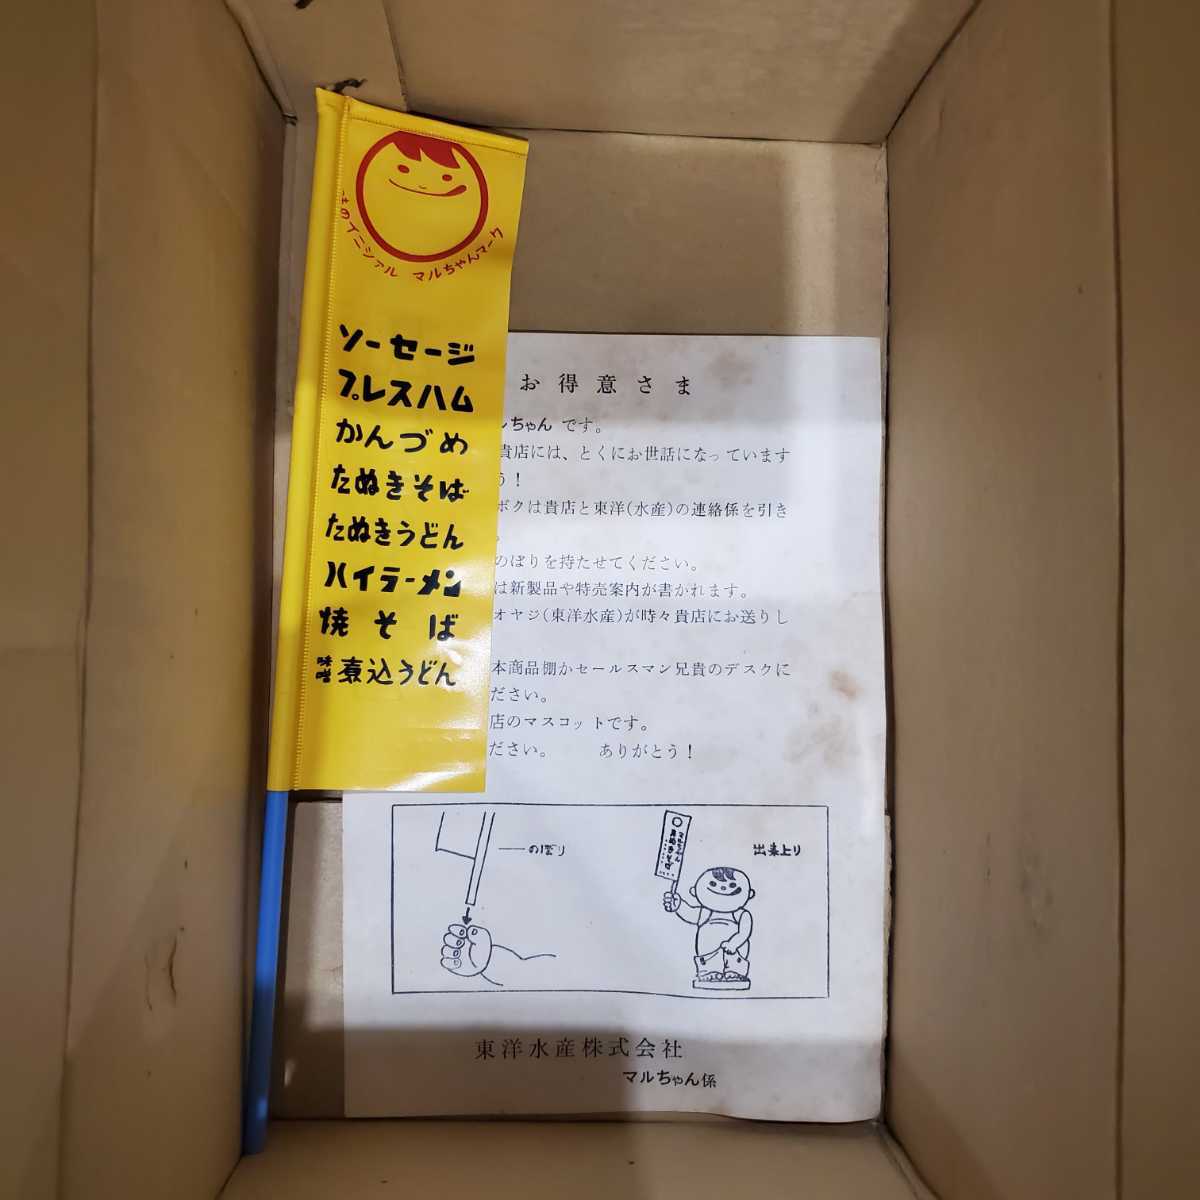 のイニシァル マルちゃんマーク
ソーセージ
プレスハム
かんづめ
たぬきそば
たぬきうどん
ハイラーメン
焼そば
味噌煮込うどん
お得意さま
ちゃん です。
貴店には、とくにお世話になっています
う!
ボクは貴店と東洋(水産)の連絡係を引き
。
のぼりを持たせてください。
は新製品や特売案内が書かれます。
オヤジ(東洋水産)が時々貴店にお送りし
本商品棚かセールスマン兄貴のデスクに
ださい。
店のマスコットです。
ださい。 ありがとう!
のぼり
マルちゃん
たぬきそば
出来上り
東洋水産株式会社
マルちゃん係